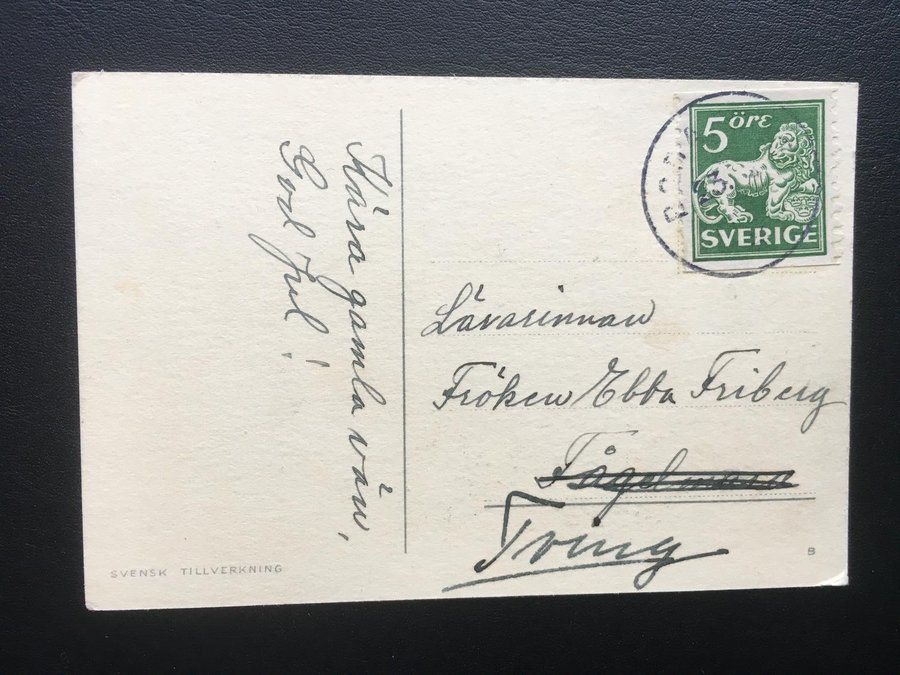 Kära gamla vän,
God Jul!
5 öre
SVERIGE
Lärarinnan
Fröken Ebba Friberg
Fågelmara
Tving
SVENSK TILLVERKNING
B